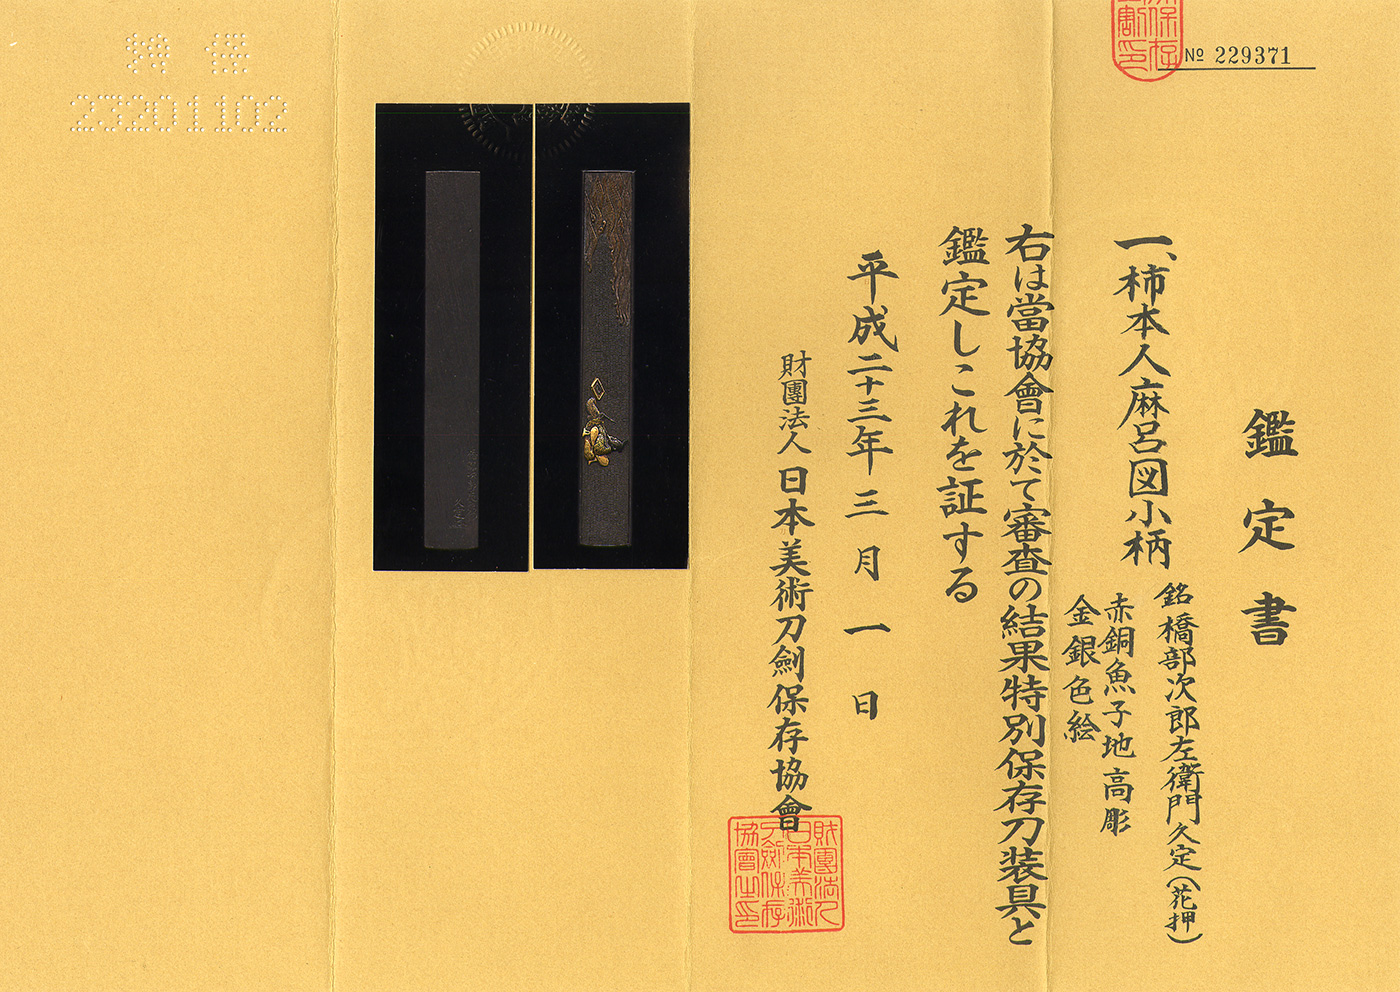 № 229371
鑑定書
一、柿本人麻呂図小柄
銘 橋部次郎左衛門久定(花押)
赤銅魚子地高彫
金銀色絵
右は當協會に於て審査の結果特別保存刀装具と
鑑定しこれを証する
平成二十三年三月一日
財團法人日本美術刀劍保存協會
財團法人
日本美術
刀劍保存
協會之印
23201102